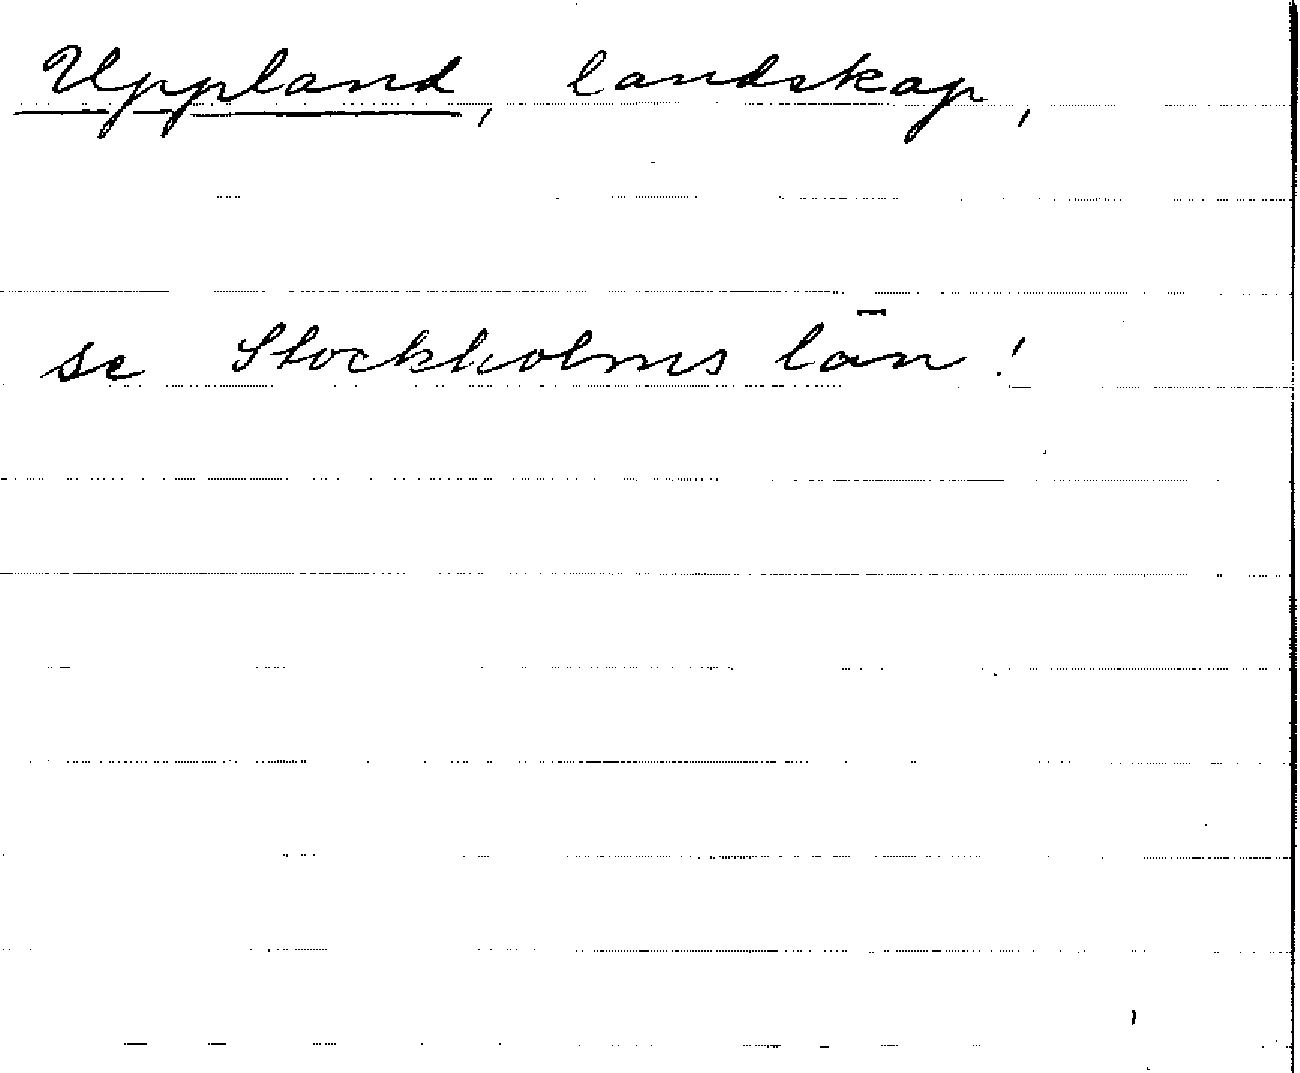 Uppland, landskap,
se Stockholms län!